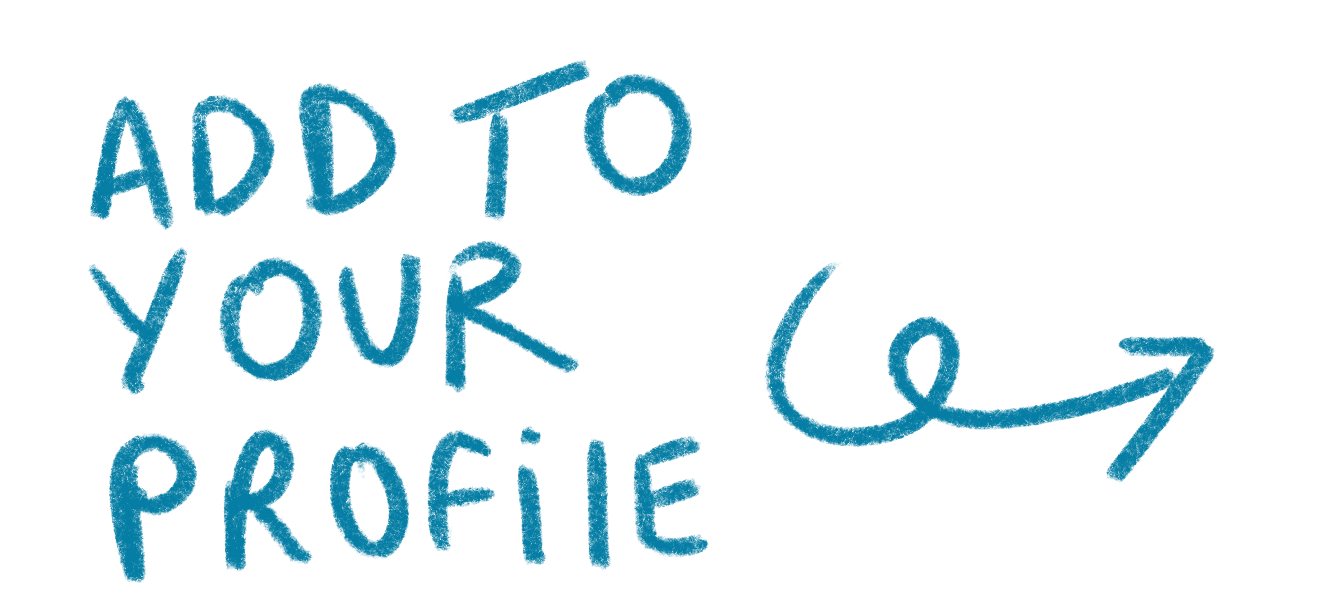 ADD TO
YOUR
PROFilE